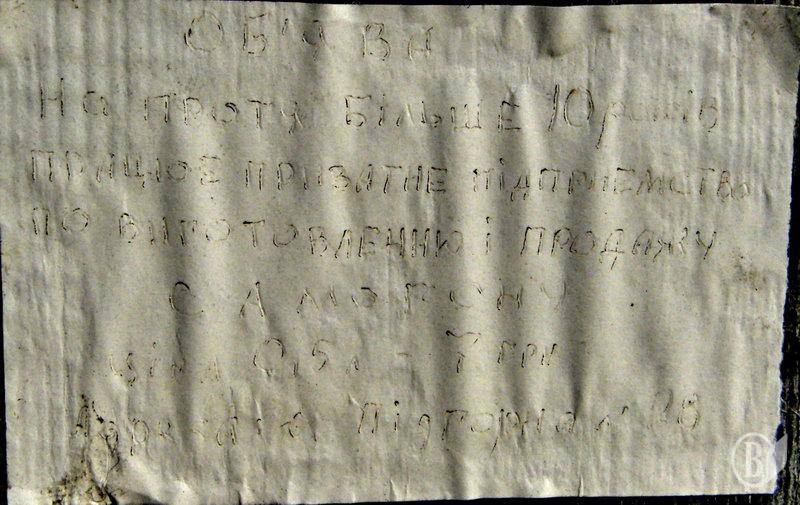 ОБ'ЯВА
НА ПРОТУ БІЛЬШЕ 10 років
ПРАЦЮЄ ПРИВАТНЕ ПІДПРИЄМСТВО
ПО ВИГОТОВЛЕННЮ І ПРОДАЖУ
САМОГОНУ
ціна 0,5л - 7 грн
Підгорна
В